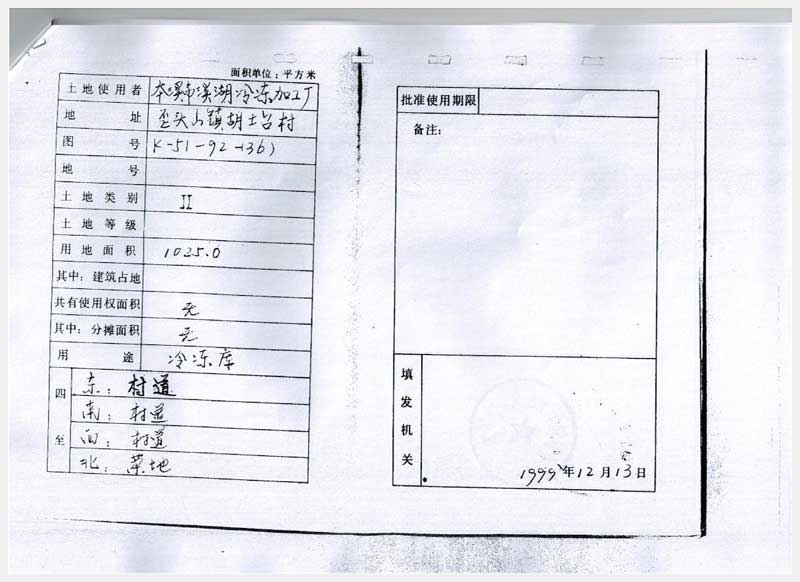 面积单位：平方米
土地使用者 本溪市溪湖冷冻加工厂
地址 歪头山镇胡土台村
图号 K-51-92-(36)
地号
土地类别 II
土地等级
用地面积 1025.0
其中：建筑占地
共有使用权面积 无
其中：分摊面积 无
用途 冷冻库
四至
东：村道
南：村道
西：村道
北：菜地
批准使用期限
备注：
填发机关
1999年12月13日